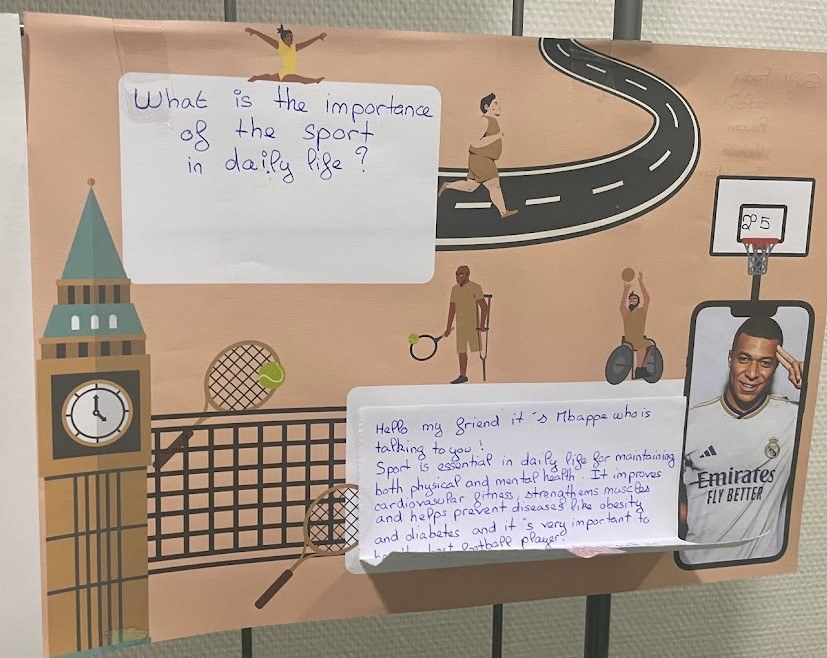 What is the importance
of the sport
in daily life ?
25
Hello my friend it 's Mbappe who is
talking to you !
Sport is essential in daily life for maintaining
both physical and mental health. It improves
cardiovascular fitness, strengthems muscles
and helps prevent diseases like obesity
and diabetes and it 's very important to
best football player!
Emirates
FLY BETTER